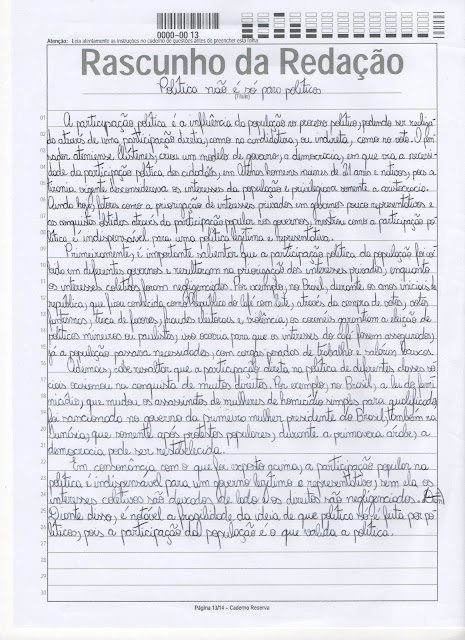 0000-00 13
Atenção: Leia atentamente as instruções no caderno de questões antes de preencher esta folha.
Rascunho da Redação
Política não é só para políticos
(Título)
A participação política é a influência da população no processo político, podendo ser realiza-
da através de uma participação direta, como na candidatura, ou indireta, como no voto. O pen-
sador ateniense, Clístenes, criou um modelo de governo, a democracia, em que via a necessi-
dade da participação política dos cidadãos, em Atenas homens maiores de 21 anos e nativos, pois a
tirania vigente desconsiderava os interesses da população e privilegiava somente a aristocracia.
Ainda hoje, fatores como a priorização de interesses privados em governos pouco representativos e
as conquistas obtidas através da participação popular nos governos, mostram como a participação po-
lítica é indispensável para uma política legítima e representativa.
Primeiramente, é importante salientar que a participação política da população foi coi-
bida em diferentes governos e resultaram na priorização dos interesses privados, enquanto
os interesses coletivos foram negligenciados. Por exemplo, no Brasil, durante os anos iniciais da
república, que ficou conhecida como República do Café com leite, através da compra de votos, votos
fantasmas, troca de favores, fraudes eleitorais e violência, os coronéis garantiam a eleição de
políticos mineiros ou paulistas, isso ocorria para que os interesses do café fossem assegurados,
já a população passava necessidades, com cargas pesadas de trabalho e salários baixos.
Ademais, cabe ressaltar que a participação direta na política de diferentes classes so-
ciais ocasionou na conquista de muitos direitos. Por exemplo, no Brasil, a lei do femi-
nicídio, que mudou os assassinatos de mulheres de homicídio simples para qualificado,
foi sancionada no governo da primeira mulher presidente do Brasil, também na
Tunísia, que somente após protestos populares, durante a primavera árabe, a
democracia pode ser restabelecida.
Em consonância com o que foi exposto acima, a participação popular na
política é indispensável para um governo legítimo e representativo, sem ela os
interesses coletivos são deixados de lado e os direitos são negligenciados.
Diante disso, é notável a fragilidade da ideia de que política só é feita por po-
líticos, pois a participação da população é o que valida a política.
Página 13/14 – Caderno Reserva